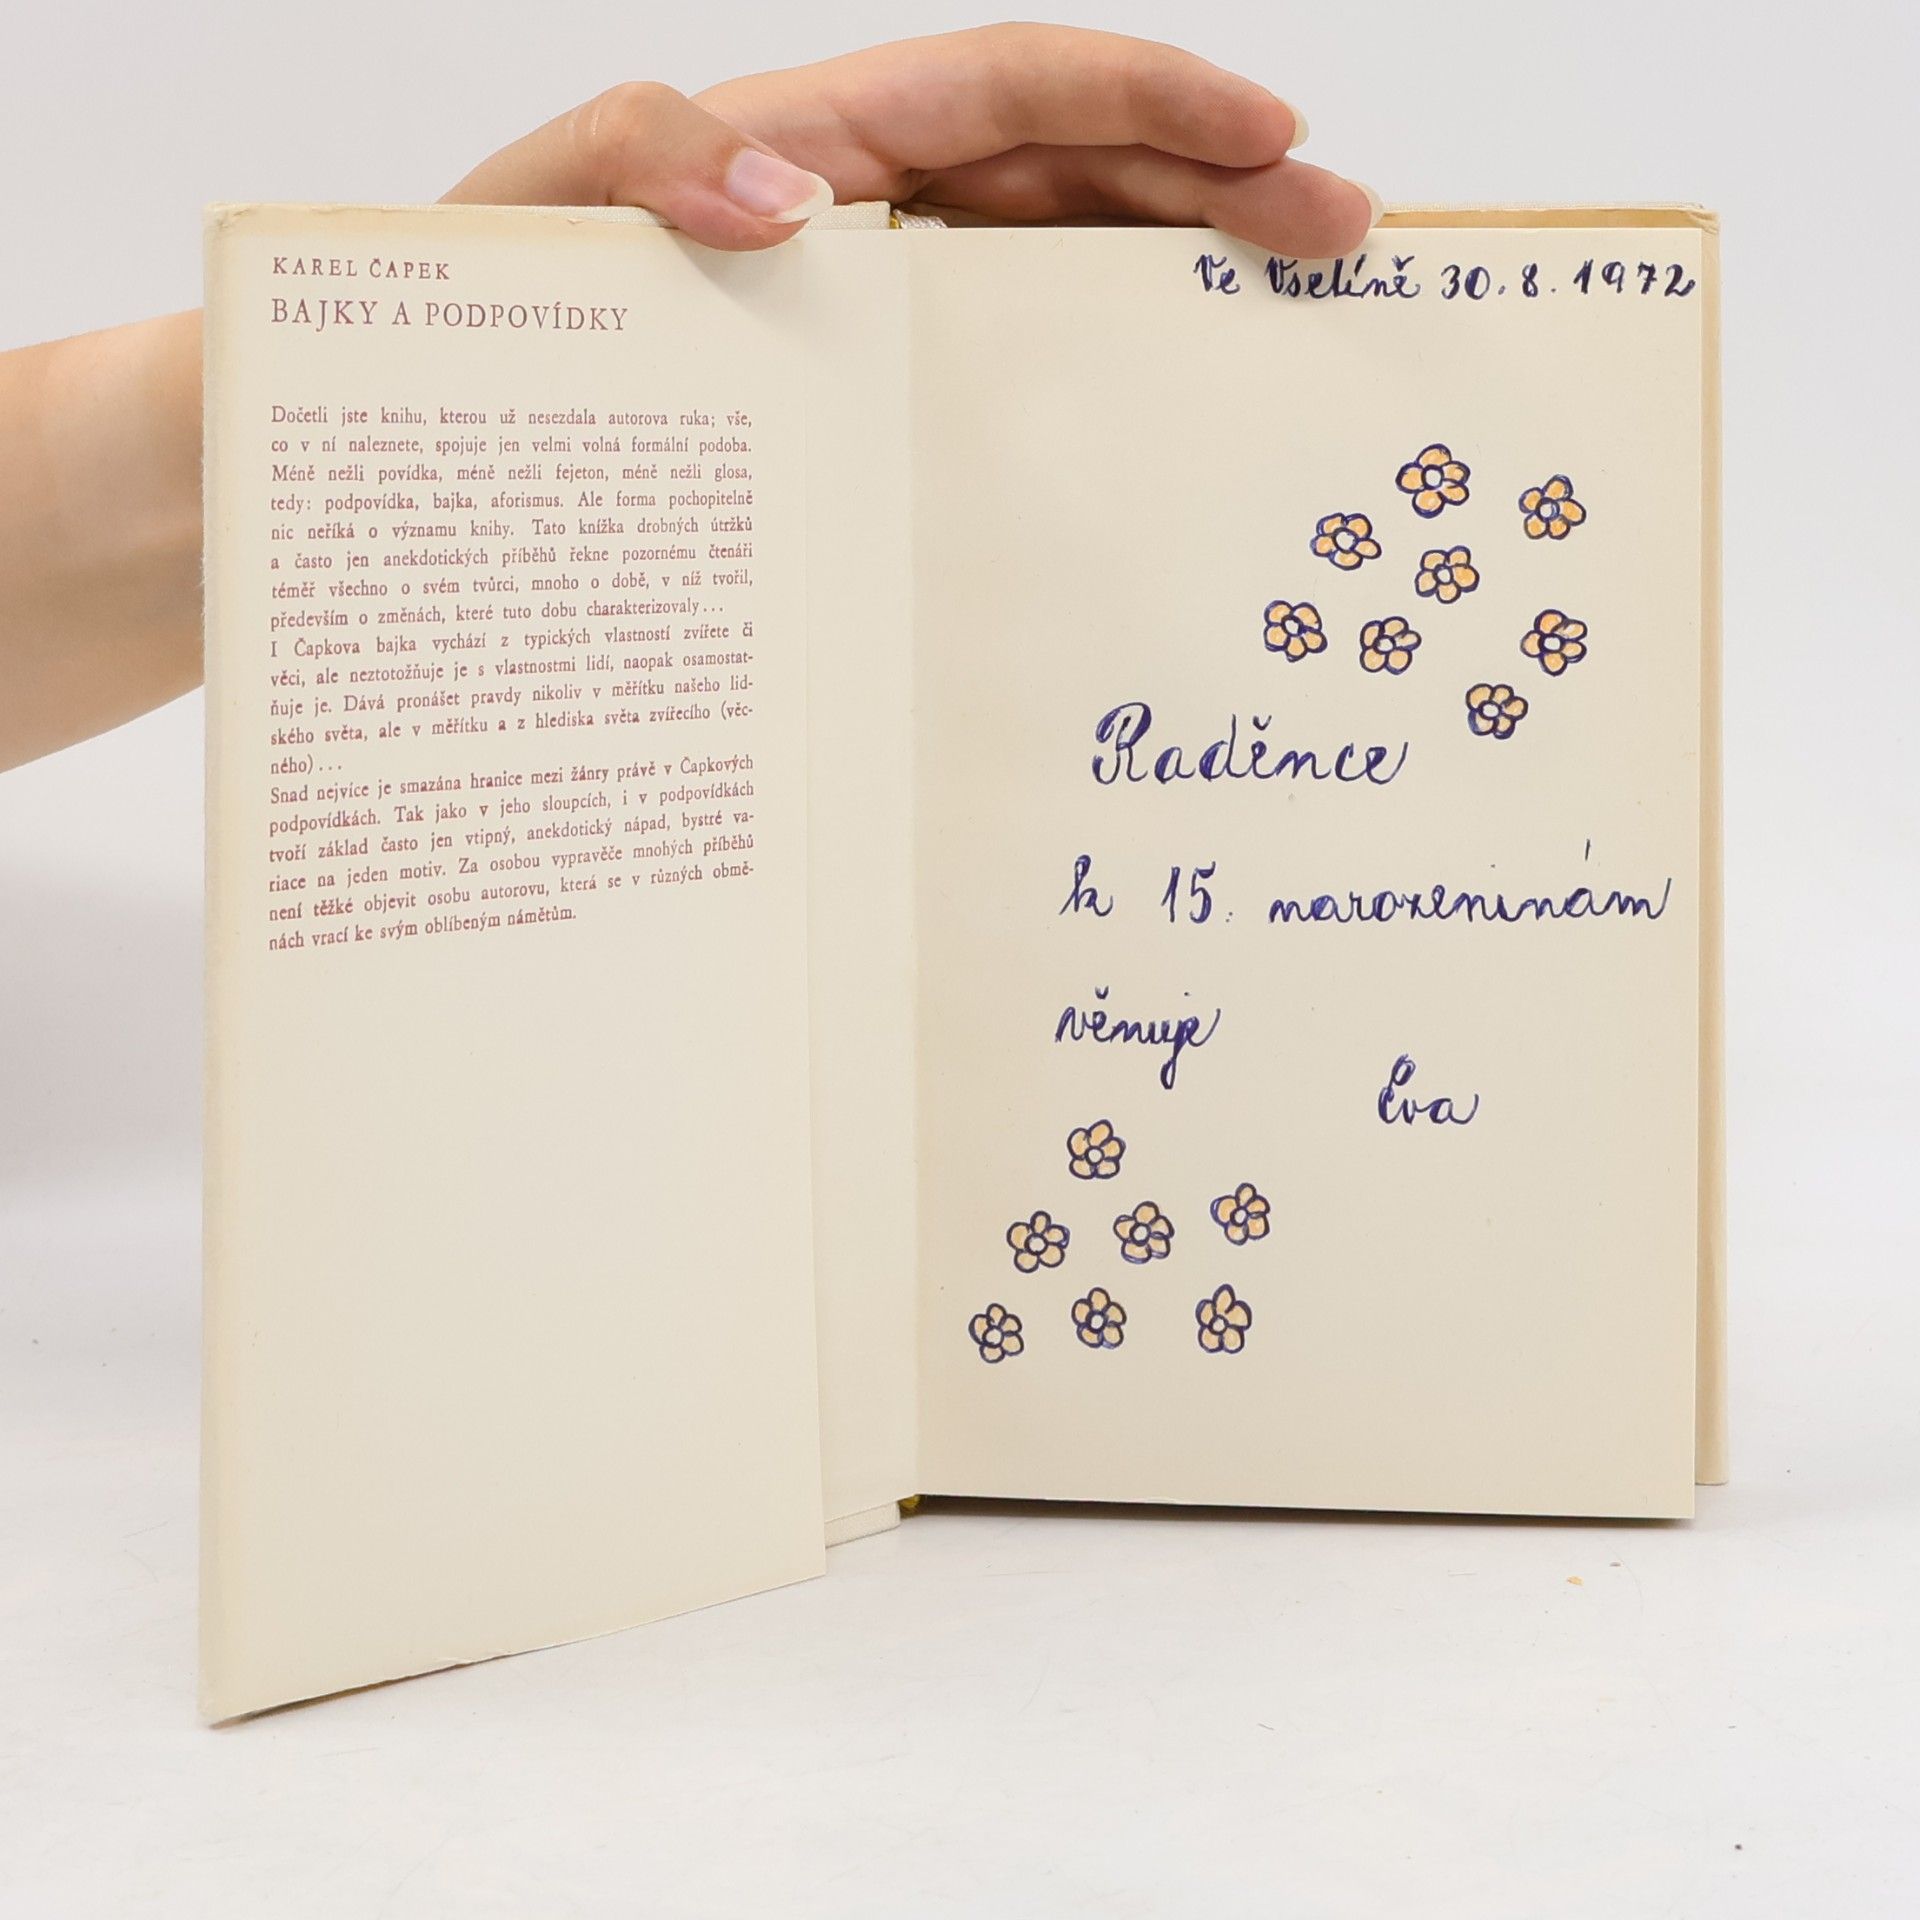 KAREL ČAPEK
BAJKY A PODPOVÍDKY
Dočetli jste knihu, kterou už nesezdala autorova ruka; vše,
co v ní naleznete, spojuje jen velmi volná formální podoba.
Méně nežli povídka, méně nežli fejeton, méně nežli glosa,
tedy: podpovídka, bajka, aforismus. Ale forma pochopitelně
nic neříká o významu knihy. Tato knížka drobných útržků
a často jen anekdotických příběhů řekne pozornému čtenáři
téměř všechno o svém tvůrci, mnoho o době, v níž tvořil,
především o změnách, které tuto dobu charakterizovaly...
I Čapkova bajka vychází z typických vlastností zvířete či
věci, ale neztotožňuje je s vlastnostmi lidí, naopak osamostat-
ňuje je. Dává pronášet pravdy nikoliv v měřítku našeho lid-
ského světa, ale v měřítku a z hlediska světa zvířecího (věc-
ného)...
Snad nejvíce je smazána hranice mezi žánry právě v Čapkových
podpovídkách. Tak jako v jeho sloupcích, i v podpovídkách
tvoří základ často jen vtipný, anekdotický nápad, bystré va-
riace na jeden motiv. Za osobou vypravěče mnohých příběhů
není těžké objevit osobu autorovu, která se v různých obmě-
nách vrací ke svým oblíbeným námětům.
Ve Vsetíně 30. 8. 1972
Raděnce
k 15. narozeninám
věnuje
Eva